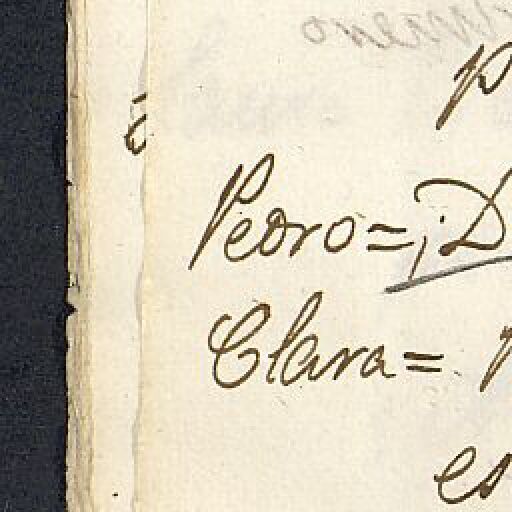 p
Pedro=¡D
Clara=
es